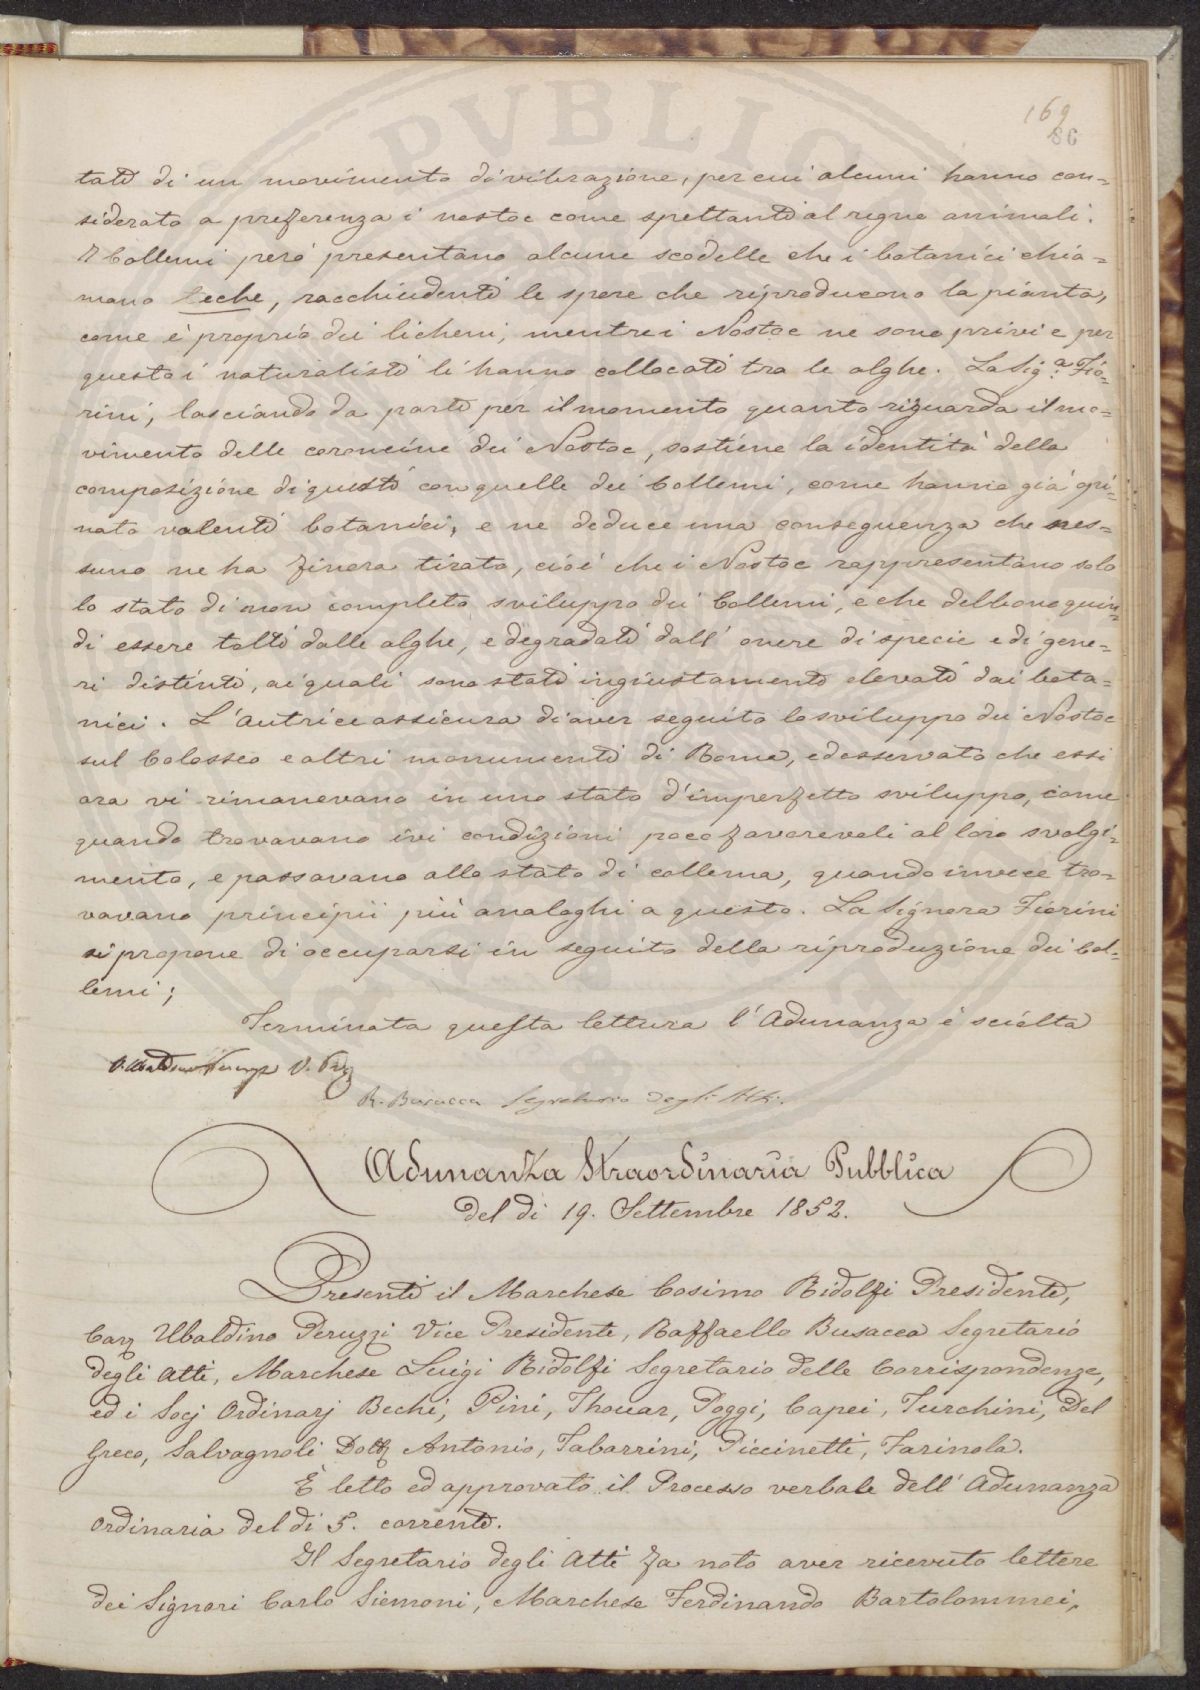 169
86
tati di un movimento di vibrazione, per cui alcuni hanno con=
siderato a preferenza i nostoc come spettanti al regno animali.
I Collemi però presentano alcune scodelle che i botanici chia=
mano Teche, racchiudenti le spore che riproducono la pianta,
come è proprio dei licheni, mentre i Nostoc ne sono privi e per
questo i naturalisti li hanno collocati tra le alghe. La Sig.ª Fio=
rini, lasciando da parte per il momento quanto riguarda il mo=
vimento delle coroncine dei Nostoc, sostiene la identità della
composizione di questi con quelle dei Collemi, come hanno già opi=
nato valenti botanici, e ne deduce una conseguenza che nes=
suno ne ha finora tirato, cioè che i Nostoc rappresentano solo
lo stato di non completo sviluppo dei Collemi, e che debbono quin=
di essere tolti dalle alghe, e degradati dall' onore di specie e di gene=
ri distinti, ai quali sono stati ingiustamente elevati dai bota=
nici. L'autrice assicura di aver seguito lo sviluppo dei Nostoc
sul Colosseo e altri monumenti di Roma, ed osservato che essi
ora vi rimanevano in uno stato d'imperfetto sviluppo, come
quando trovavano ivi condizioni poco favorevoli al loro svolgi=
mento, e passavano allo stato di collema, quando invece tro=
vavano principii più analoghi a questo. La Signora Fiorini
si propone di occuparsi in seguito della riproduzione dei Col=
lemi;
Terminata questa lettura l'Adunanza è sciolta
Ubaldino Peruzzi V. Pres
R. Busacca Segretario degli Atti.
Adunanza Straordinaria Pubblica
del dì 19. Settembre 1852.
Presenti il Marchese Cosimo Ridolfi Presidente,
Cav Ubaldino Peruzzi Vice Presidente, Raffaello Busacca Segretario
degli Atti, Marchese Luigi Ridolfi Segretario delle Corrispondenze,
ed i Socj Ordinarj Bechi, Pini, Thouar, Poggi, Capei, Turchini, Del
Greco, Salvagnoli Dott Antonio, Tabarrini, Piccinetti, Farinola.
È letto ed approvato il Processo verbale dell' Adunanza
Ordinaria del dì 5. corrente.
Il Segretario degli Atti fa noto aver ricevuto lettere
dei Signori Carlo Siemoni, Marchese Ferdinando Bartolommei,